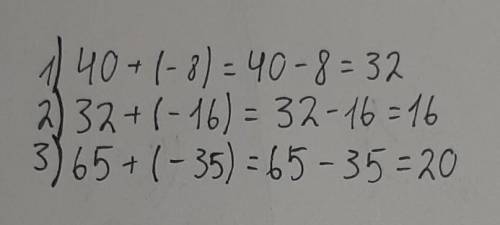 1) 40 + (- 8) = 40 - 8 = 32
2) 32 + (- 16) = 32 - 16 = 16
3) 65 + (- 35) = 65 - 35 = 20